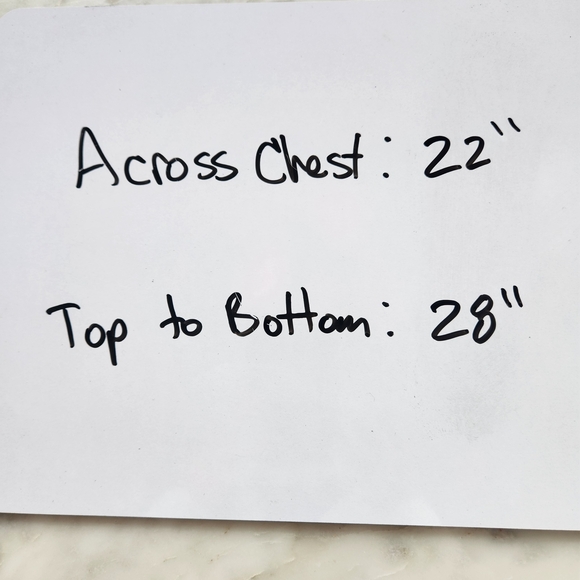 Across Chest: 22"
Top to Bottom: 28"